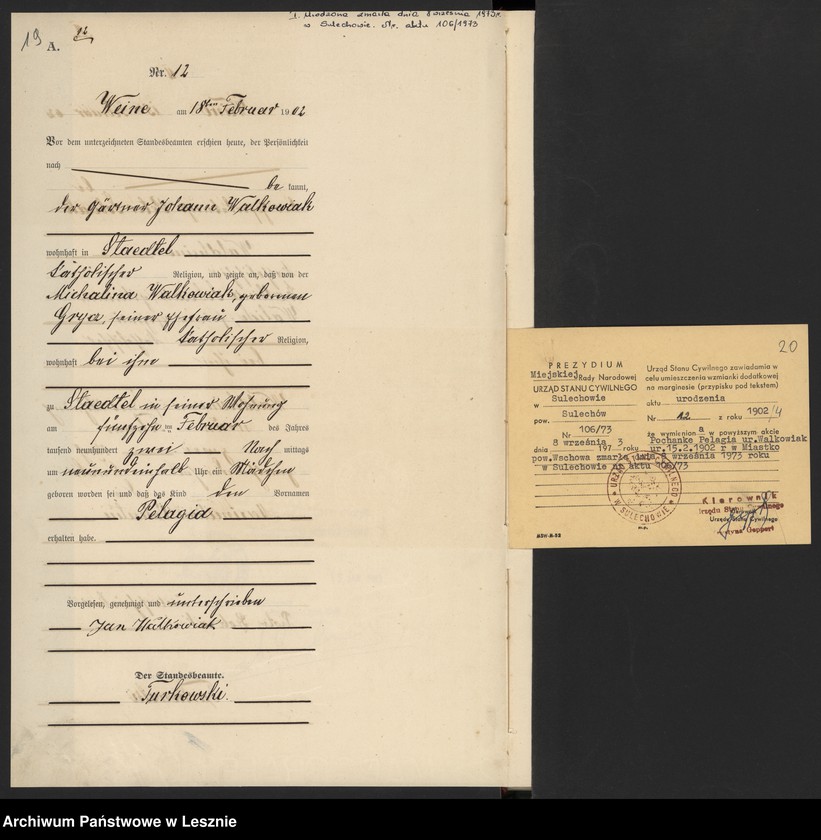 1. Urodzona zmarła dnia 8 września 1973 r.
w Sulechowie. Nr. aktu 106/1973
19
A.
12
Nr. 12
Weine am 18ten Februar 1902
Vor dem unterzeichneten Standesbeamten erschien heute, der Persönlichkeit
nach
be kannt,
der Gärtner Johann Walkowiak
wohnhaft in Staedtel
katholischer Religion, und zeigte an, daß von der
Michalina Walkowiak, geborenen
seiner Ehefrau
katholischer Religion,
wohnhaft bei ihm
zu Staedtel in seiner Wohnung
am fünfzehn ten Februar des Jahres
tausend neunhundert zwei Nach mittags
um neuneinhalb Uhr ein Mädchen
geboren worden sei und daß das Kind den Vornamen
Pelagia
erhalten habe.
Vorgelesen, genehmigt und unterschrieben
Jan Walkowiak
Der Standesbeamte.
Turkowski.
20
PREZYDIUM
Miejskiej Rady Narodowej
URZĄD STANU CYWILNEGO
w Sulechowie
pow. Sulechów
Nr 106/73
dnia 8 września 1973 roku
Urząd Stanu Cywilnego zawiadamia w
celu umieszczenia wzmianki dodatkowej
na marginesie (przypisku pod tekstem)
aktu urodzenia
Nr 12 z roku 1902/4
że wymieniona w powyższym akcie
Pochanke Pelagia ur.Walkowiak
ur.15.2.1902 r w Miastko
pow.Wschowa zmarła dnia 8 września 1973 roku
w Sulechowie nr aktu 106/73
W SULECHOWIE
Kierownik
Urzędu Stanu Cywilnego
Kierownik
Urzędu Stanu Cywilnego
Geppert
MSW-M-52
Archiwum Państwowe w Lesznie